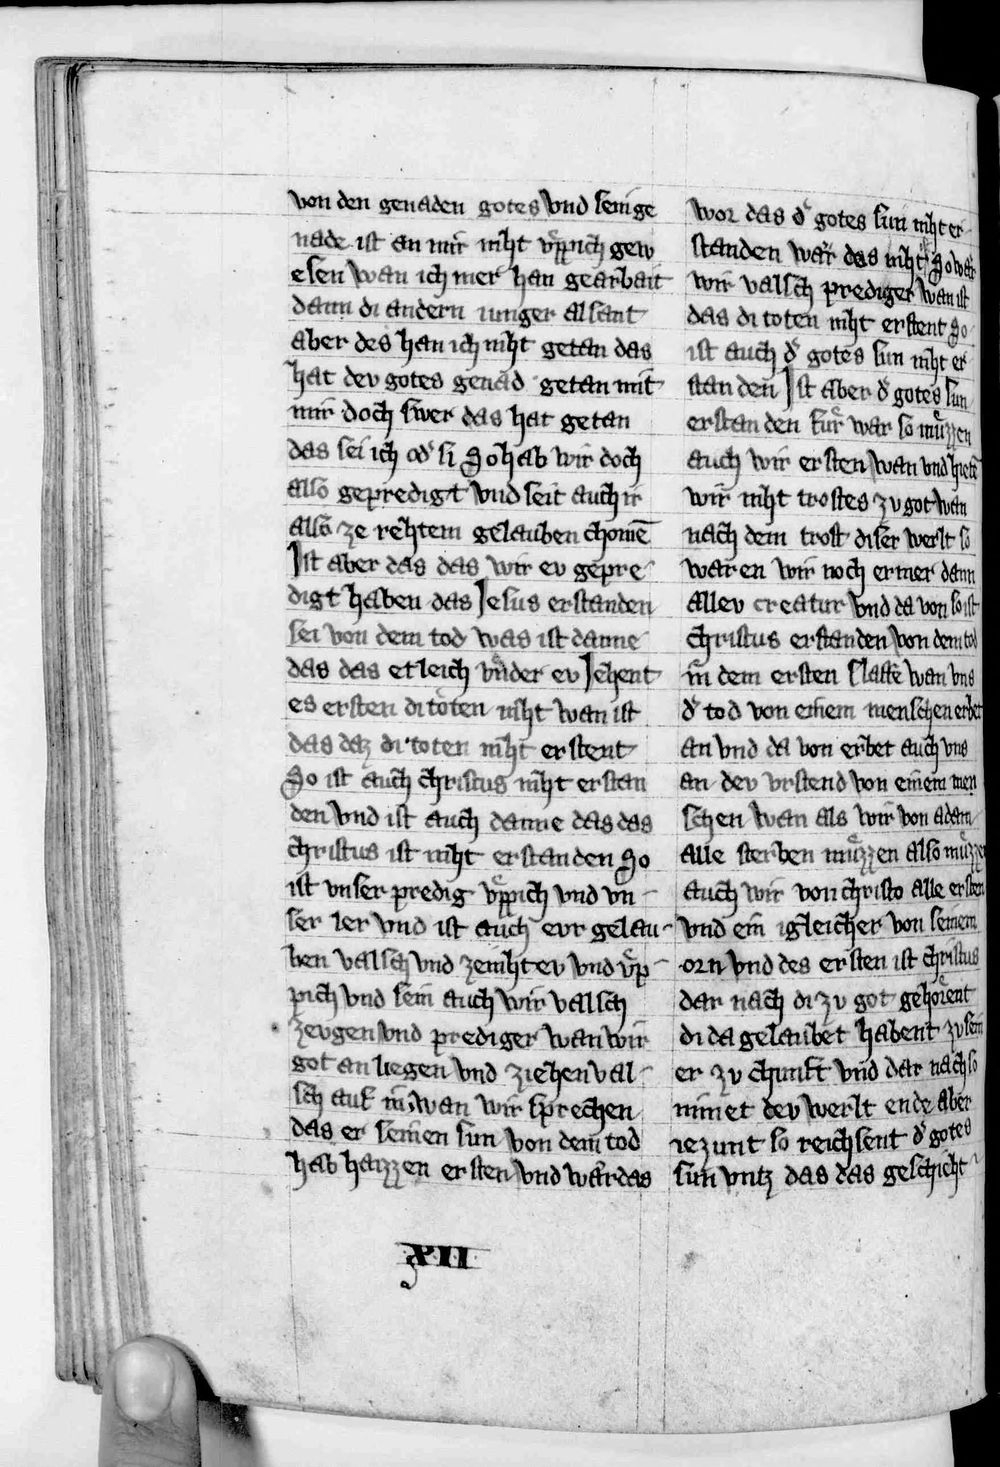 von den genaden gotes Vnd sein ge
nade ist an mir niht vͤppich gew
esen Wan ich mer han gearbait
dann di andern iunger alsant
aber des han ich niht getan das
hat dev gotes genad getan mit
mir doch swer das hat getan
das sei ich odͬ si So hab wir doch
also gepredigt vnd seit auch ir
also ze rehtem gelauben chomē
Ist aber das das wir ev gepre
digt haben das Jesus erstanden
sei von dem tod was ist danne
das das etleich vnder ev Jehent
es ersten di toten niht wan ist
das daz di toten niht erstent
So ist auch christus niht erstan
den Vnd ist auch danne das das
christus ist niht erstanden So
ist vnser predig vͤppich vnd vn
ser ler vnd ist auch evr gelau
ben valsch vnd zeniht ev vnd vͤp
pich vnd sein auch wir valsch
zevgen vnd prediger wan wir
got an liegen vnd ziehen val
sch auf in wan wir sprechen
das er seinen sun von dem tod
hab haizzen ersten vnd wär das
wor das dͬ gotes sun niht er
standen wär das niht So wär
wir valsch prediger Wan ist
das di toten niht erstent So
ist auch dͬ gotes sun niht er
standen Ist aber dͬ gotes sun
erstanden fur war so muͤzzen
auch wir ersten wan vnd hiet
wir niht trostes zv got wan
nach dem trost diser werlt so
waren wir noch ermer dann
allev creatur Vnd da von so ist
christus erstanden von dem tod
in dem ersten slaffe wan vns
dͬ tod von einem menschen erbet
an vnd da von erbet auch vns
an dev vrstend von einem men
schen wan als wir von adam
alle sterben muͤzzen also muͤzze
auch wir von christo alle ersten
vnd ein igleicher von seinem
orn vnd des ersten ist christus
dar nach di zv got gehoͤrent
di da gelaubet habent zv sein
er zv chunft vnd dar nach so
nimet dev werlt ende aber
iezunt so reichsent dͬ gotes
sun vntz das das geschicht
XII